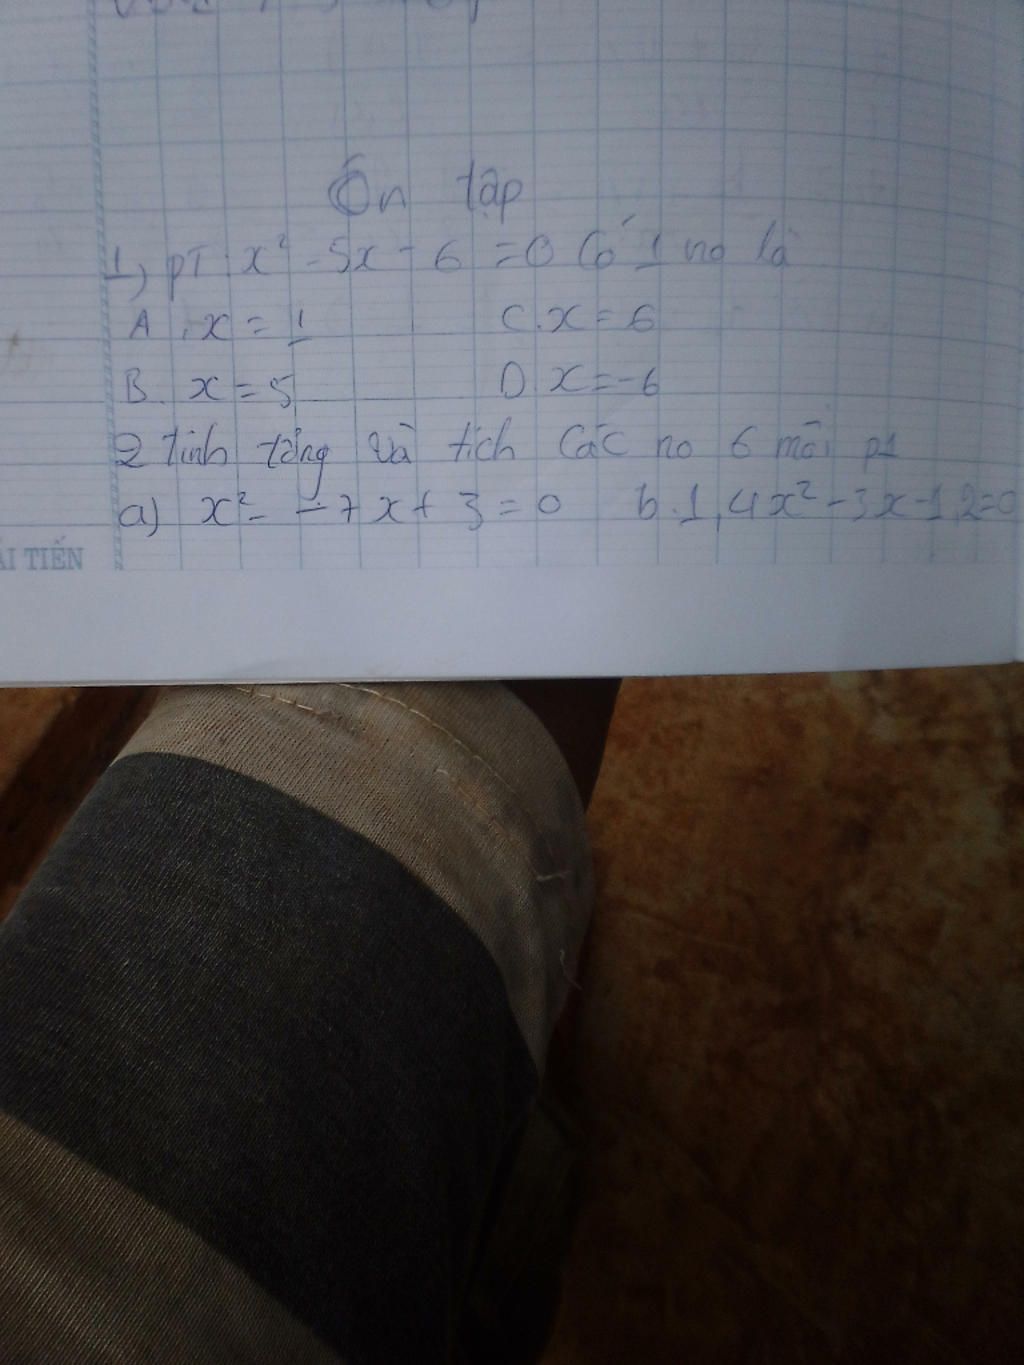 Ôn tập
1, pT x² - 5x - 6 = 0 Có 1 no là
A. x = 1 C. x = 6
B. x = 5 D x = -6
2 tính tổng và tích Các no 6 mỗi pt
a) x² - - 7x + 3 = 0 b. 1,4x² - 3x - 1,2 = 0
ẢI TIẾN